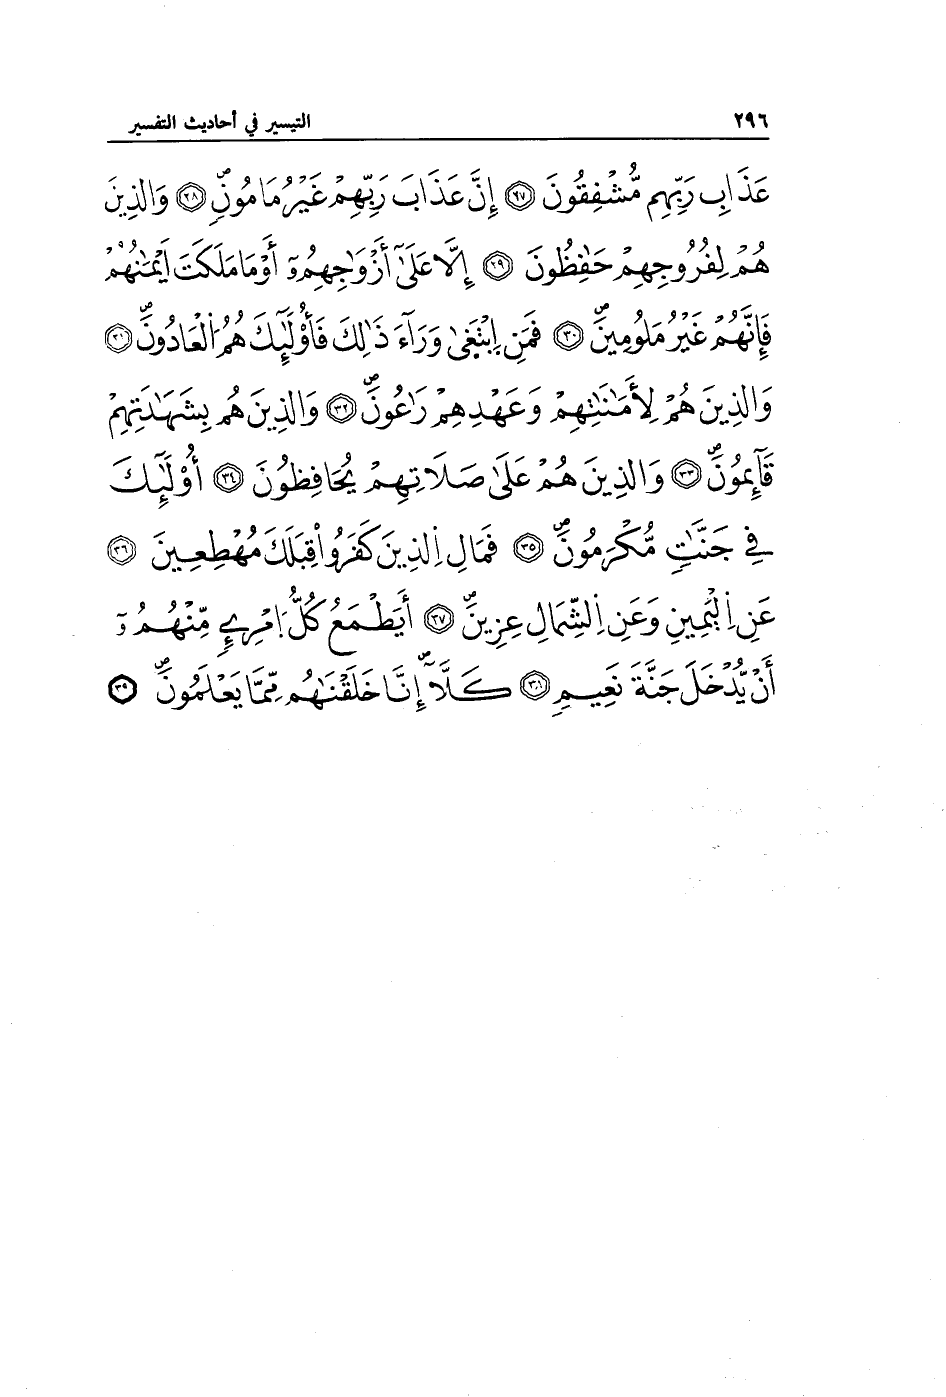 ٢٩٦ التيسير في أحاديث التفسير
عَذَابِ رَبِّهِم مُّشْفِقُونَ ۝٢٧ إِنَّ عَذَابَ رَبِّهِمْ غَيْرُ مَامُونٍ ۝٢٨ وَالذِينَ
هُمْ لِفُرُوجِهِمْ حَٰفِظُونَ ۝٢٩ إِلَّا عَلَىٰٓ أَزْوَٰجِهِمُۥٓ أَوْ مَا مَلَكَتَ اَيْمَٰنُهُمْ
فَإِنَّهُمْ غَيْرُ مَلُومِينَۖ ۝٣٠ فَمَنِ اِبْتَغىٰ وَرَآءَ ذَٰلِكَ فَأُوْلَٰٓئِكَ هُمُ اُلْعَادُونَۖ ۝٣١
وَالذِينَ هُمْ لِأَمَٰنَٰتِهِمْ وَعَهْدِهِمْ رَٰعُونَۖ ۝٣٢ وَالذِينَ هُم بِشَهَٰدَتِهِمْ
قَآئِمُونَۖ ۝٣٣ وَالذِينَ هُمْ عَلَىٰ صَلَاتِهِمْ يُحَافِظُونَ ۝٣٤ أُوْلَٰٓئِكَ
فِي جَنَّٰتٍ مُّكْرَمُونَۖ ۝٣٥ فَمَالِ اِلذِينَ كَفَرُواْ قِبَلَكَ مُهْطِعِينَ ۝٣٦
عَنِ اِلْيَمِينِ وَعَنِ اِلشِّمَالِ عِزِينَۖ ۝٣٧ أَيَطْمَعُ كُلُّ اُمْرِےٕٖ مِّنْهُمُۥٓ
أَنْ يُّدْخَلَ جَنَّةَ نَعِيمٍ ۝٣٨ كَلَّآۖ إِنَّا خَلَقْنَٰهُم مِّمَّا يَعْلَمُونَۖ ۝٣٩